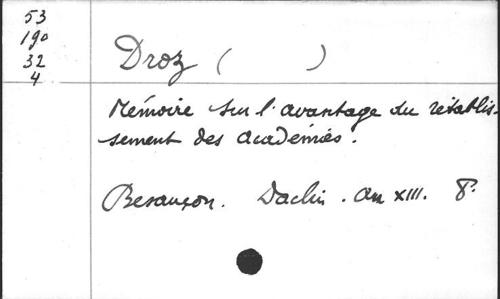 53
190
32
4
Droz ( )
Mémoire sur l'avantage du rétablis-
sement des académies.
Besançon. Daclin. an XIII. 8º.